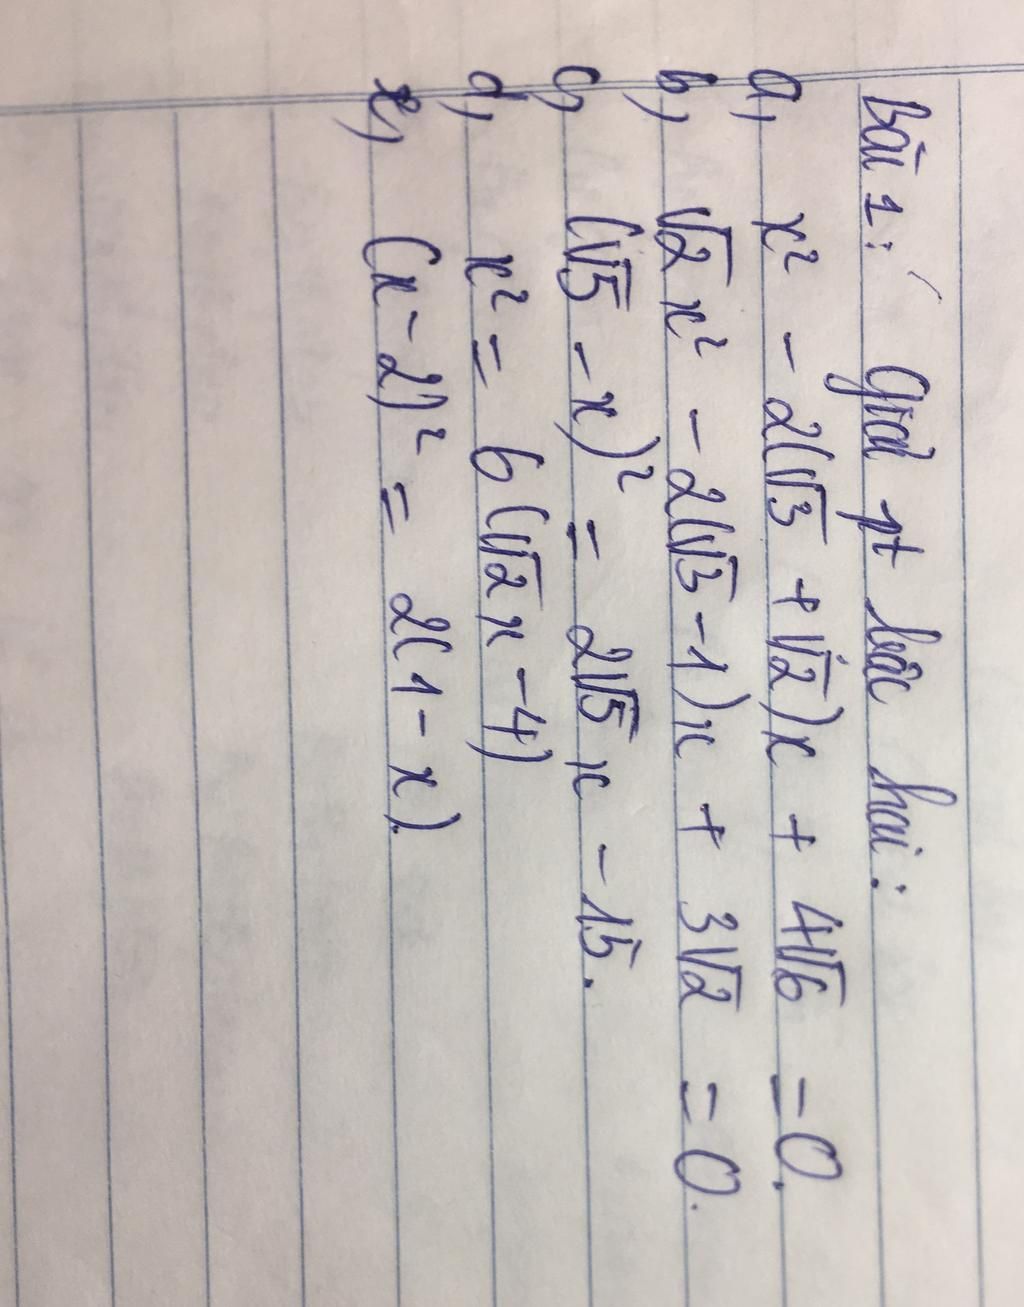 Bài 1: Giải pt bậc hai:
a, x² - 2(√3 + √2)x + 4√6 = 0.
b, √2x² - 2(√3-1)x + 3√2 = 0.
c, (√5 - x)² = 2√5x - 15.
d, x² = 6(√2x - 4)
e, (x-2)² = 2(1-x).